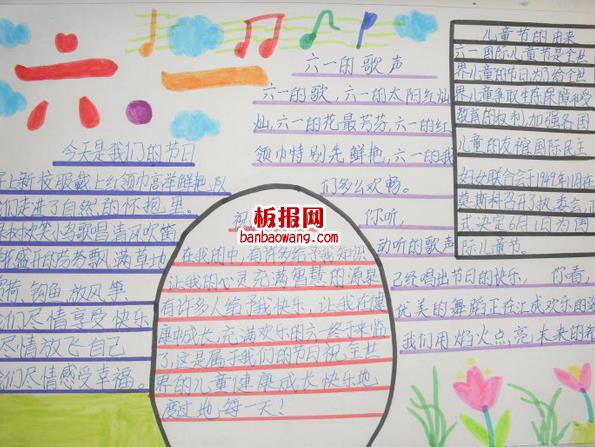 六一
今天是我们的节日
穿上新校服戴上红领巾高举鲜艳队
我们走进了自然的怀抱里。
欢笑小鸟歌唱清风吹笛
盛开的芬芳飘满草地
钓鱼,放风筝
我们尽情享受快乐
尽情放飞自己
我们尽情感受幸福。
六一的歌声
六一的歌,六一的太阳红灿
灿,六一的花最芬芳,六一的红
领巾特别先鲜艳,六一的我
们多么欢畅。
你听,
动听的歌声
已经唱出节日的快乐, 你看,
优美的舞蹈正在汇成欢乐的
我们用焰火点亮,未来的
祝
在我的中,有许多给予我知识
让我的心灵充满智慧的源泉
有许多人给予我快乐,让我在健
康中成长,充满欢乐的六一终于来临
了,这是属于我们的节日祝全世
界的儿童健康成长快乐地
度过地每一天!
儿童节的由来
六一国际儿童节是全世
界儿童的节日为了给全世
界儿童争取生存保障受
教育的权利,加强各国
儿童的友谊国际民主
妇女联合会于1949年11在
莫斯科召开了执委会正
式决定6月1日为国
际儿童节。
板报网
banbaowang.com